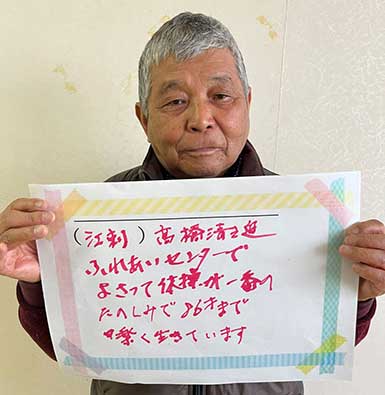 (江刺) 高橋清
ふれあいセンターで
よさって体操が一番の
たのしみで86才まで
楽く生きています